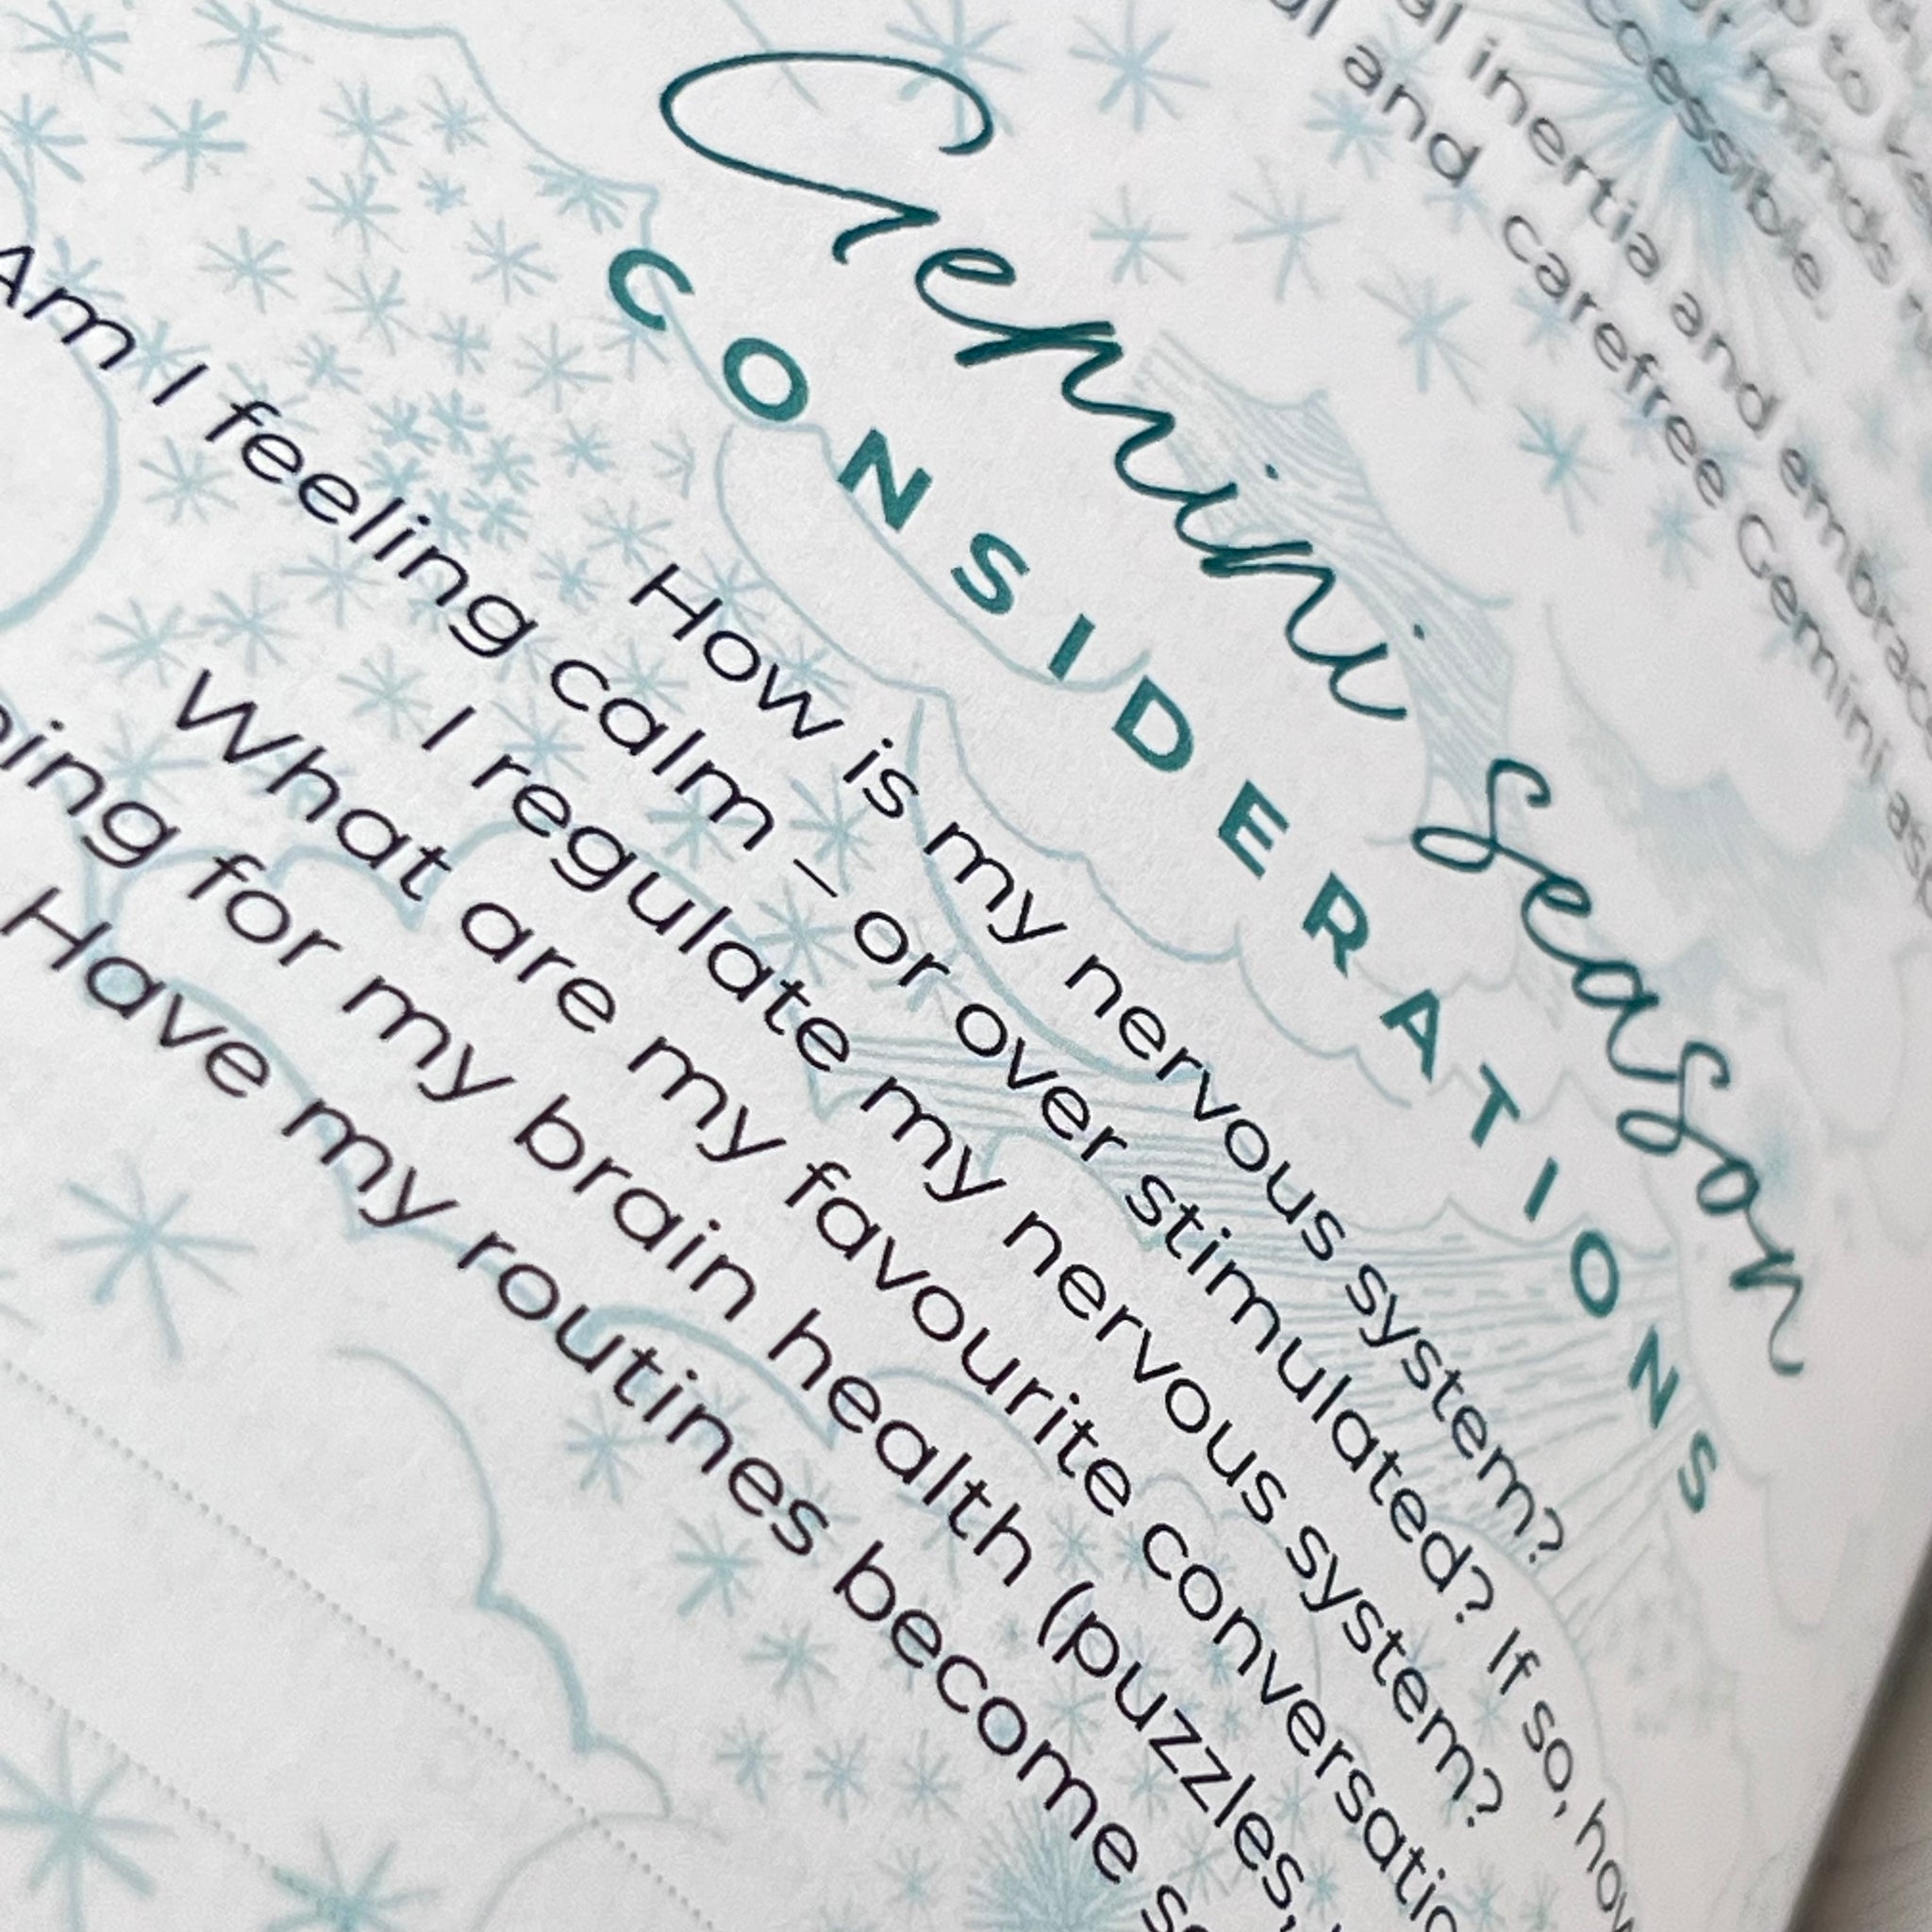 to
minds
accessible.
inertia and
and carefree Gemini
Gemini season
CONSIDERATIONS
How is my nervous system?
Am I feeling calm – or over stimulated? If so, how
I regulate my nervous system?
What are my favourite
for my brain health (puzzles,
Have my routines become